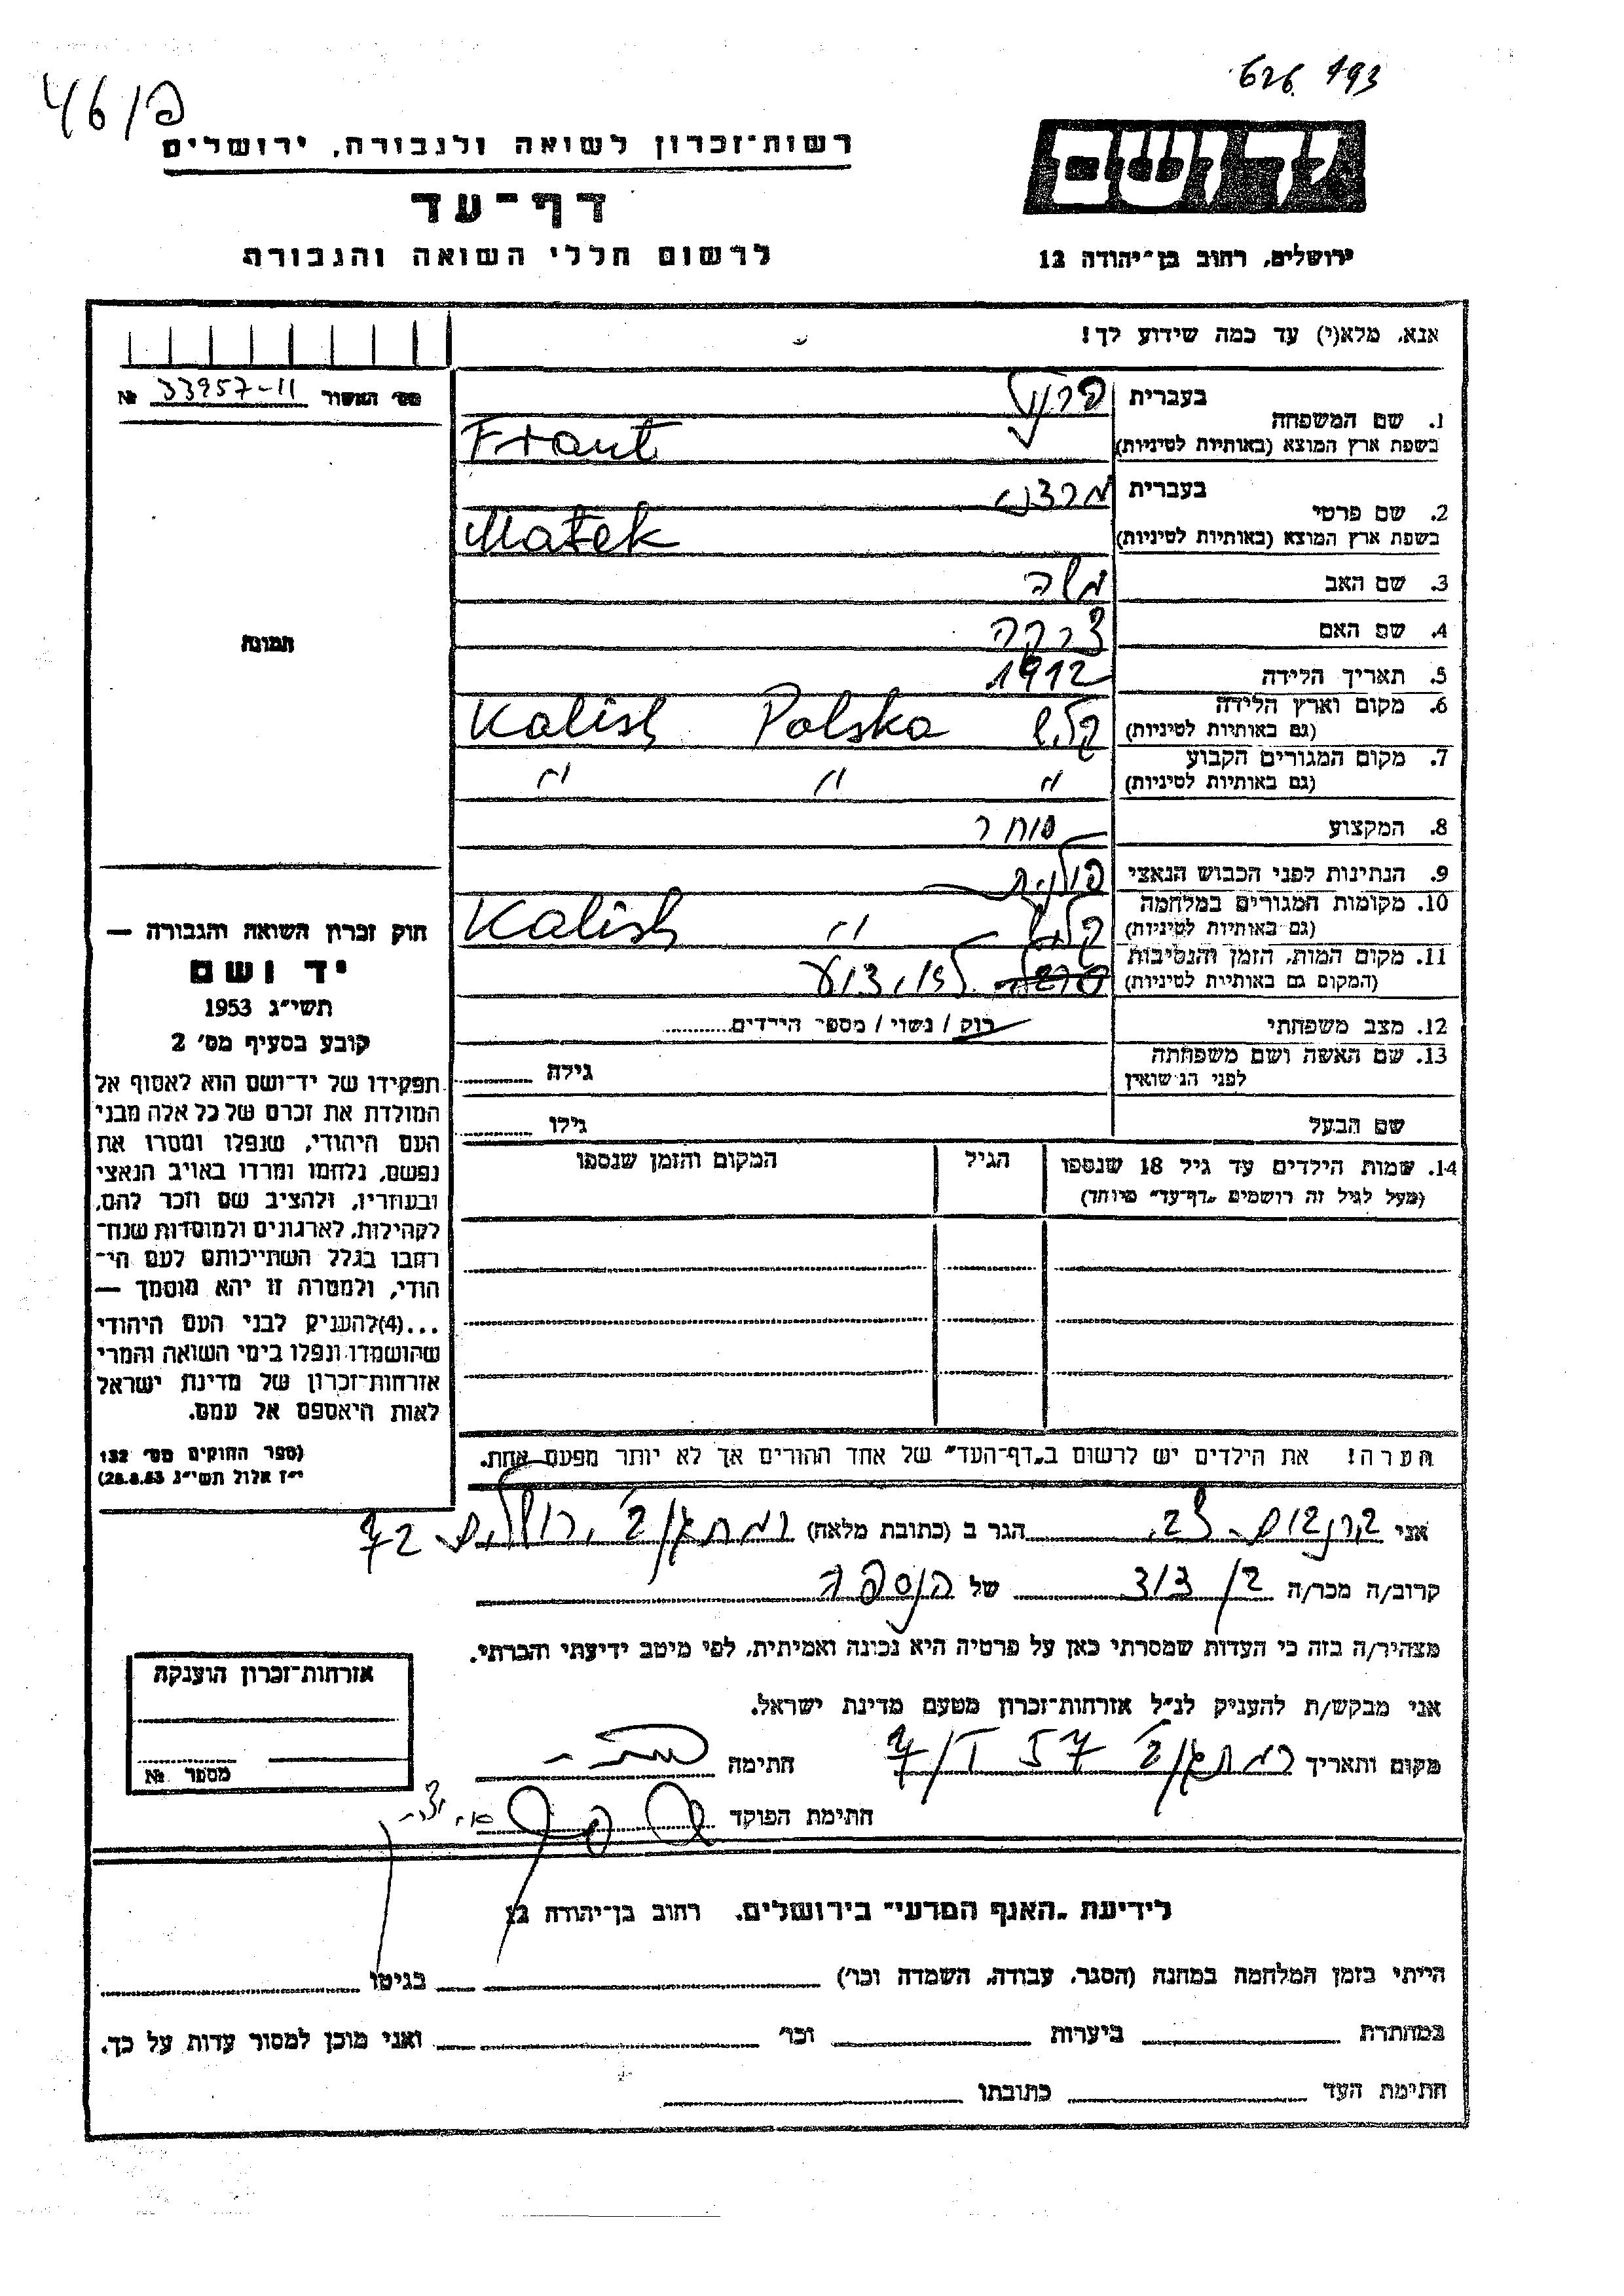 626. 193
46/פ
יד ושם
רשות־זכרון לשואה ולגבורה, ירושלים
דף־עד
ירושלים, רחוב בן־יהודה 12
לרשום חללי השואה והגבורה
אנא, מלא(י) עד כמה שידוע לך!
מס׳ האשור 33957-11 №
1. שם המשפחה
בעברית
בשפת ארץ המוצא (באותיות לטיניות) Frant
2. שם פרטי
בעברית
בשפת ארץ המוצא (באותיות לטיניות) Matek
3. שם האב משה
4. שם האם
5. תאריך הלידה 1912
6. מקום וארץ הלידה
(גם באותיות לטיניות) קליש Polska Kalish
7. מקום המגורים הקבוע
(גם באותיות לטיניות) " " "
8. המקצוע סוחר
9. הנתינות לפני הכבוש הנאצי פולנית
10. מקומות המגורים במלחמה
(גם באותיות לטיניות) קליש " Kalish
11. מקום המות, הזמן והנסיבות
(המקום גם באותיות לטיניות) לא ידוע
12. מצב משפחתי רוק / נשוי / מספר הילדים
13. שם האשה ושם משפחתה
לפני הנישואין
גילה
שם הבעל גילו
14. שמות הילדים עד גיל 18 שנספו
(מעל לגיל זה רושמים „דף־עד״ מיוחד)
הגיל
המקום והזמן שנספו
הערה! את הילדים יש לרשום ב„דף־העד״ של אחד ההורים אך לא יותר מפעם אחת.
תמונה
חוק זכרון השואה והגבורה —
יד ושם
תשי״ג 1953
קובע בסעיף מס׳ 2
תפקידו של יד־ושם הוא לאסוף אל
המולדת את זכרם של כל אלה מבני
העם היהודי, שנפלו ומסרו את
נפשם, נלחמו ומרדו באויב הנאצי
ובעוזריו, ולהציב שם וזכר להם,
לקהילות, לארגונים ולמוסדות שנח־
רבו בגלל השתייכותם לעם הי־
הודי, ולמטרה זו יהא מוסמך —
...(4)להעניק לבני העם היהודי
שהושמדו ונפלו בימי השואה והמרי
אזרחות־זכרון של מדינת ישראל
לאות היאספם אל עמם.
(ספר החוקים מס׳ 132
י״ז אלול תשי״ג 28.8.53)
אני הגר ב (כתובת מלאה) רמת גן
קרוב/ה מכר/ה של הנספה
מצהיר/ה בזה כי העדות שמסרתי כאן על פרטיה היא נכונה ואמיתית, לפי מיטב ידיעתי והכרתי.
אני מבקש/ת להעניק לנ״ל אזרחות־זכרון מטעם מדינת ישראל.
מקום ותאריך רמת גן חתימה
חתימת הפוקד
אזרחות־זכרון הוענקה
מספר №
לידיעת „האגף המדעי״ בירושלים. רחוב בן־יהודה 12
הייתי בזמן המלחמה במחנה (הסגר, עבודה, השמדה וכו׳) בגיטו
במחתרת ביערות וכו׳ ואני מוכן למסור עדות על כך.
חתימת העד כתובתו